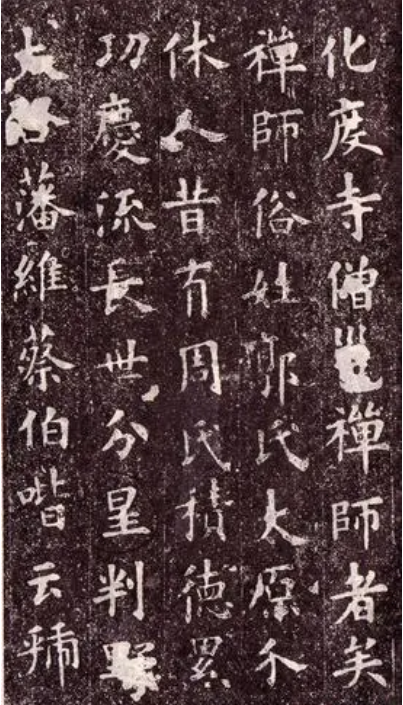 化度寺僧禪師者矣
禪師俗姓郭氏大原介
休人昔有周氏積德累
功慶流長世分星判
藩維蔡伯喈云虢